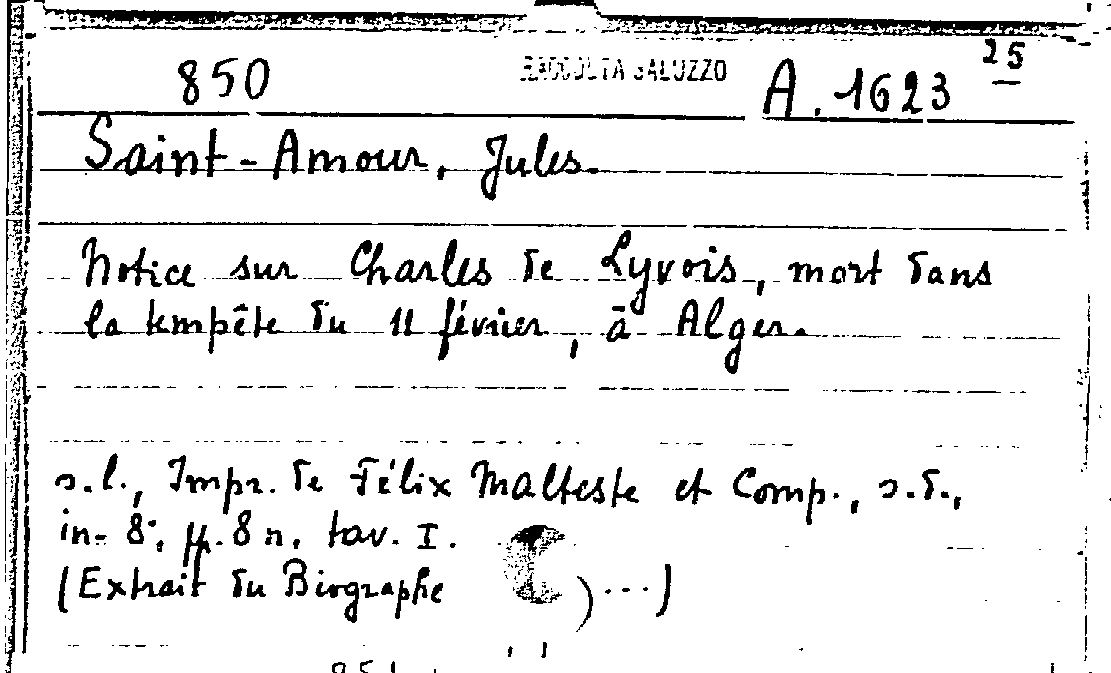 850 RACCOLTA SALUZZO A. 1623 25
Saint-Amour, Jules.
Notice sur Charles de Lyvois, mort dans
la tempête du 11 février, à Alger.
s.l., Impr. de Félix Malteste et Comp., s.d.,
in-8°, pp. 8 n. tav. I.
(Extrait du Biographe ) ...)